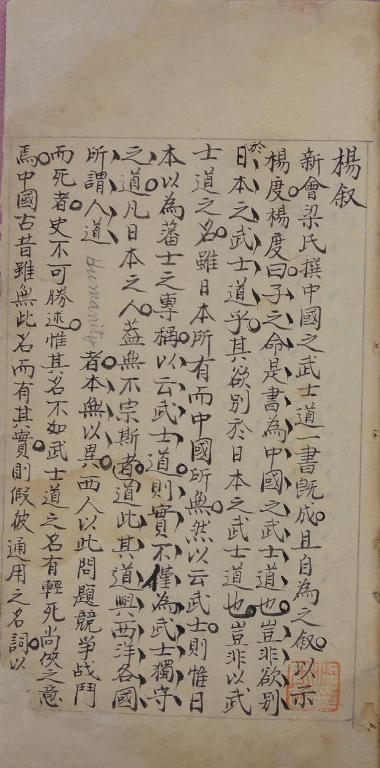 楊叙
新會梁氏撰中國之武士道一書既成。且自為之叙。以示
楊度。楊度曰。子之命是書為中國之武士道也。豈非欲別
於日本之武士道乎。其欲別於日本之武士道也。豈非以武
士道之名。雖日本所有而中國所無。然以云武士。則惟日
本以為藩士之專稱。以云武士道。則實不僅為武士獨守
之道。凡日本之人。蓋無不宗斯道者。此其道與西洋各國
所謂人道 Humanity 者。本無以異。西人以此問題競爭战鬥
而死者。史不可勝述。惟其名不如武士道之名有輕死尚俠之意
焉。中國古昔雖無此名而有其實。則假彼通用之名詞。以